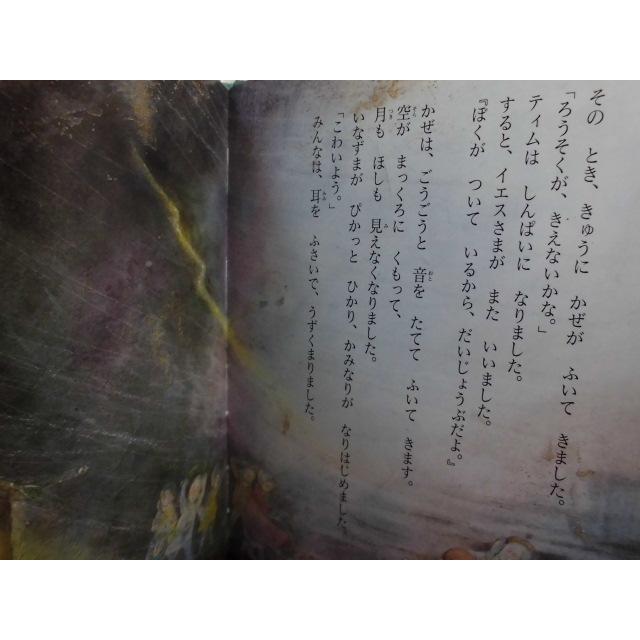 その とき、きゅうに かぜが ふいて きました。
「ろうそくが、きえないかな。」
ティムは しんぱいに なりました。
すると、イエスさまが また いいました。
『ぼくが ついて いるから、だいじょうぶだよ。』
かぜは、ごうごうと 音を たてて ふいて きます。
空が まっくろに くもって、
月も ほしも 見えなくなりました。
いなずまが ぴかっと ひかり、かみなりが なりはじめました。
「こわいよう。」
みんなは、耳を ふさいで、うずくまりました。